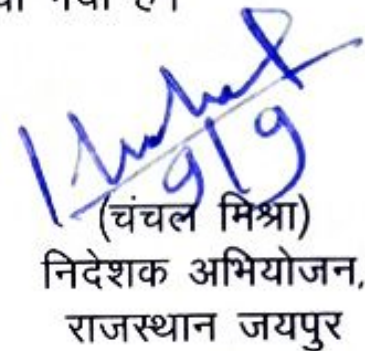 गया है।
9/9
(चंचल मिश्रा)
निदेशक अभियोजन,
राजस्थान जयपुर